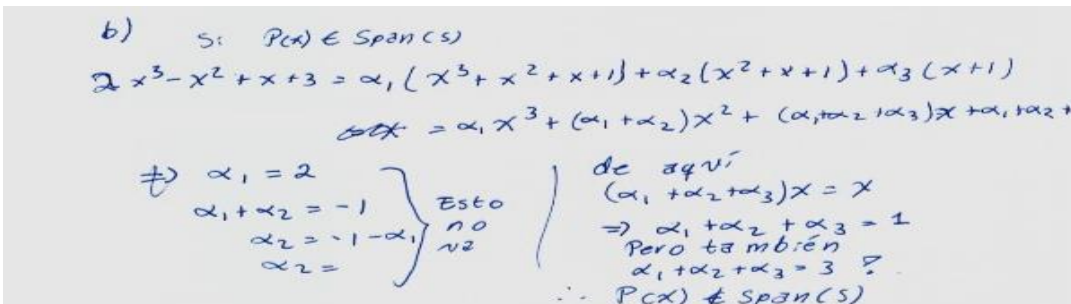 b) Si P(x) ∈ Span(s)
2x³ - x² + x + 3 = α₁(x³ + x² + x + 1) + α₂(x² + x + 1) + α₃(x + 1)
= α₁x³ + (α₁ + α₂)x² + (α₁ + α₂ + α₃)x + α₁ + α₂ +
⇒ α₁ = 2
α₁ + α₂ = -1
α₂ = -1 - α₁
α₂ =
Esto
no
va
de aquí
(α₁ + α₂ + α₃)x = x
⇒ α₁ + α₂ + α₃ = 1
Pero también
α₁ + α₂ + α₃ = 3 ?
∴ P(x) ∉ Span(s)